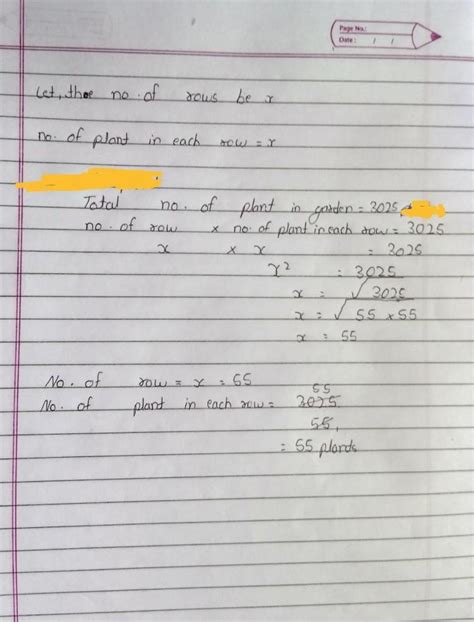 Page No.:
Date: / /
Let, the no. of rows be x
no. of plant in each row = x
Total no. of plant in garden = 3025
no. of row x no. of plant in each row = 3025
x x x = 3025
x² = 3025
x = √3025
x = √55 x 55
x = 55
No. of row = x = 55
55
No. of plant in each row = 3025
55
= 55 plants